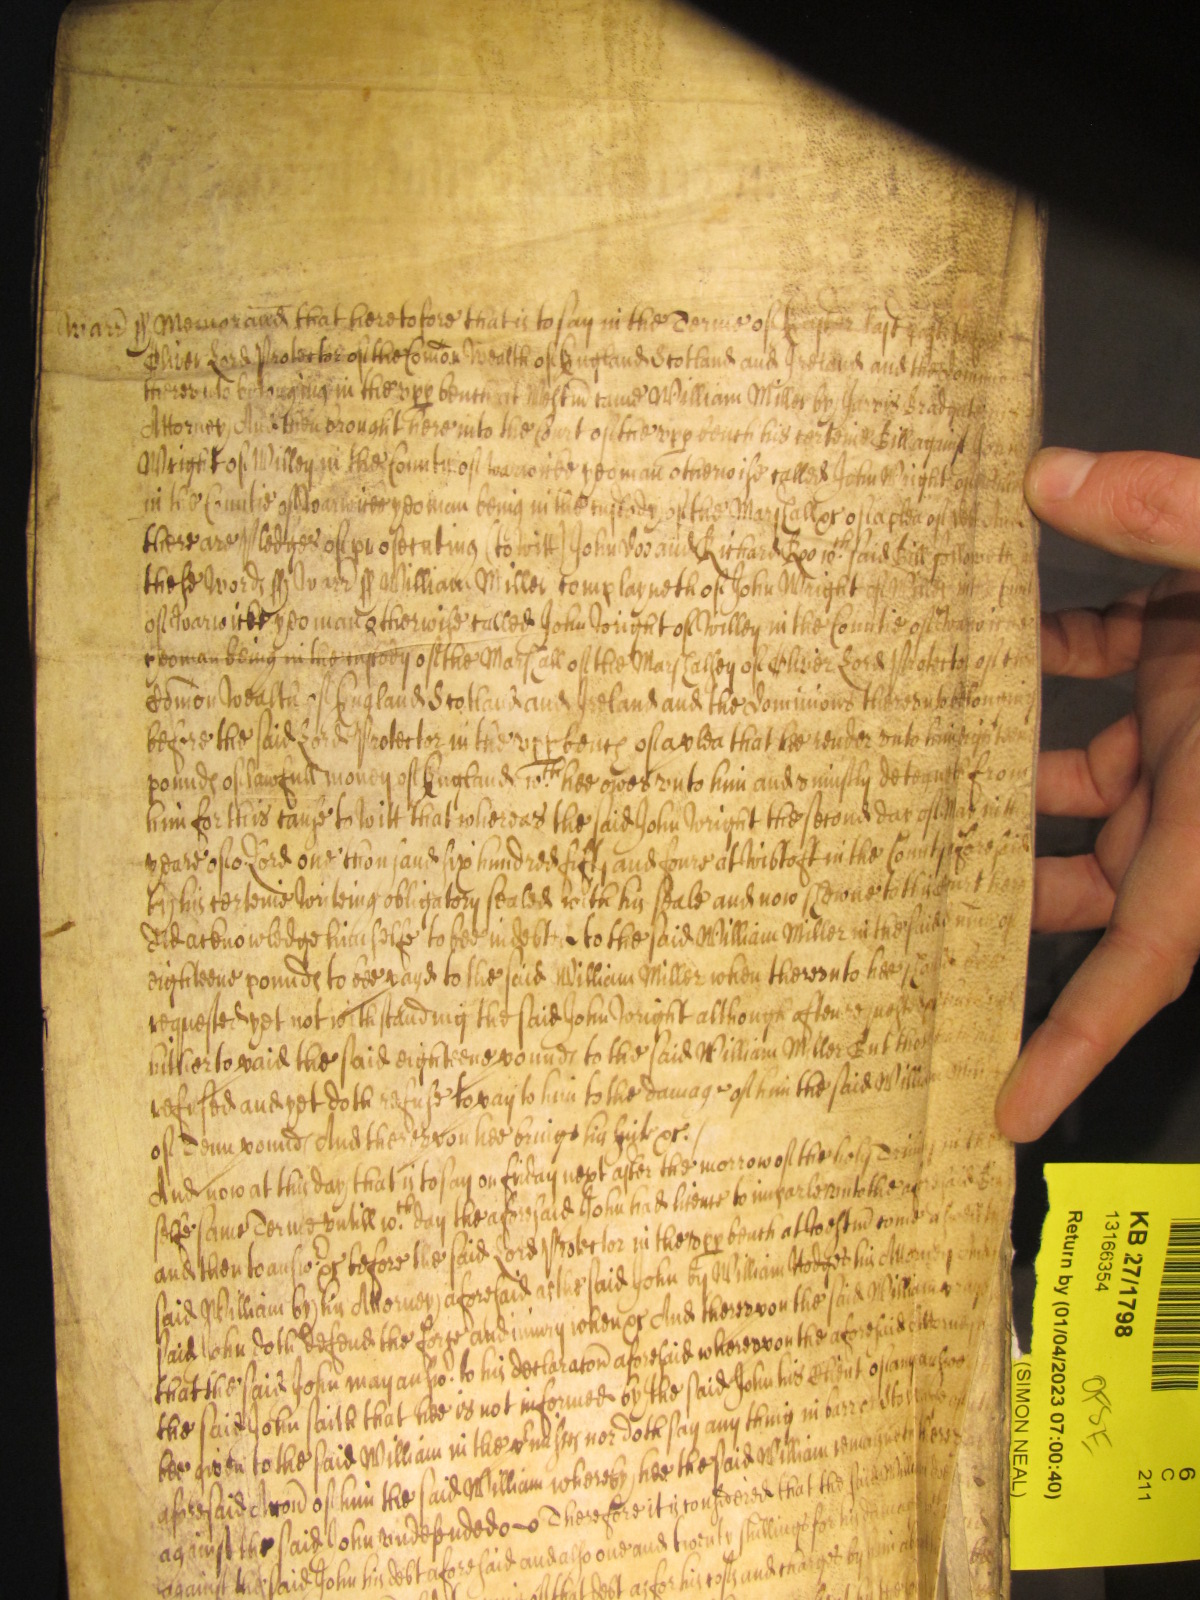 Warr ss Memorand that heretofore that is to say in the Terme of Easter last past
Oliver Lord Protector of the Comon Wealth of England Scotland and Ireland and the dominions
thereunto belonging in the upp bench at Westm came William Miller by Jarvis Bradgate
Attorney And then brought here into the Court of the upp bench his certeine Bill against John
Wright of Willey in the County of Warwicke yeoman otherwise called John Wright of
in the Countie of Warwicke yeoman being in the custody of the Marshall &c of a plea of debt And
there are pledges of prosecuting (to witt) John Doo and Richard Roo wch said Bill followeth in
these words ss Warr ss William Miller complayneth of John Wright of Willey in the County
of Warwicke yeoman otherwise called John Wright of Willey in the Countie of Warwicke
yeoman being in the custody of the Marshall of the Marshalsey of Oliver Lord Protector of the
Comon Wealth of England Scotland and Ireland and the dominions thereunto belonging
before the said Lord Protector in the upp bench of a plea that he render unto him eighteene
pounds of lawfull money of England wch hee owes unto him and uniustly deteynes from
him for this cause to witt that whereas the said John Wright the second day of May in the
yeare of o Lord one thousand six hundred fifty and foure at Wibtoft in the County aforesaid
by his certeine writeing obligatory sealed with his seale and now shewne to the Court here
did acknowledge himselfe to bee indebted to the said William Miller in the said sume of
eighteene pounds to bee payd to the said William Miller when thereunto hee should bee
requested yet notwithstanding the said John Wright although often requested
hitherto paid the said eighteene pounds to the said William Miller but
refused and yet doth refuse to pay to him to the damage of him the said William
of Tenn pounds And thereupon hee brings his suit &c.
And now at this day that is to say on Friday next after the morrow of the holy Trinity in the
selfe same Terme untill wch day the aforesaid John had licence to imparle unto the aforesaid Bill
and then to answ &c before the said Lord Protector in the upp bench at Westm come aswell the
said William by his Attorney aforesaid as the said John by William Hodges his Attorney And the
said John doth defend the force and iniury when &c And thereupon the said William prayes
that the said John may answ to his declaracon aforesaid whereupon the aforesaid Attorney of
the said John saith that hee is not informed by the said John his Client of any answ to
bee given to the said William in the pmisses nor doth say any thing in barre
aforesaid accon of him the said William whereby hee the said William remaineth
against the said John undefended Therefore it is considered that the said William
against the said John his debt aforesaid and also one and twenty shillings for his damages
of that debt as for his costs and charges by him about
KB 27/1798
13166354
Return by (01/04/2023 07:00:40)
(SIMON NEAL)
6
C
211